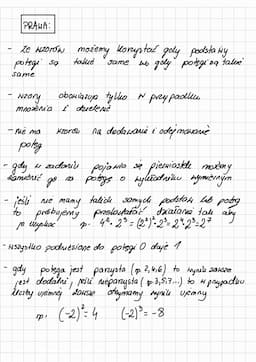 PRAWA:
- ze wzorów możemy korzystać gdy podstawy
potęgi są takie same lub gdy potęgi są takie
same
- wzory obowiązują tylko w przypadku
mnożenia i dzielenia
- nie ma wzorów na dodawanie i odejmowanie
potęg
- gdy w zadaniu pojawia się pierwiastek możemy
zamienić go na potęgę o wykładniku wymiernym
- jeśli nie mamy takich samych podstaw lub potęg
to próbujemy przekształcić działania tak aby
je uzyskać np. 4²·2³=(2²)²·2³=2⁴·2³=2⁷
- wszystko podniesione do potęgi 0 daje 1
- gdy potęga jest parzysta (np 2,4,6) to wynik zawsze
jest dodatni, jeśli nieparzysta (np 3,5,7...) to w przypadku
liczby ujemnej zawsze otrzymamy wynik ujemny
np. (-2)²=4 (-2)³=-8